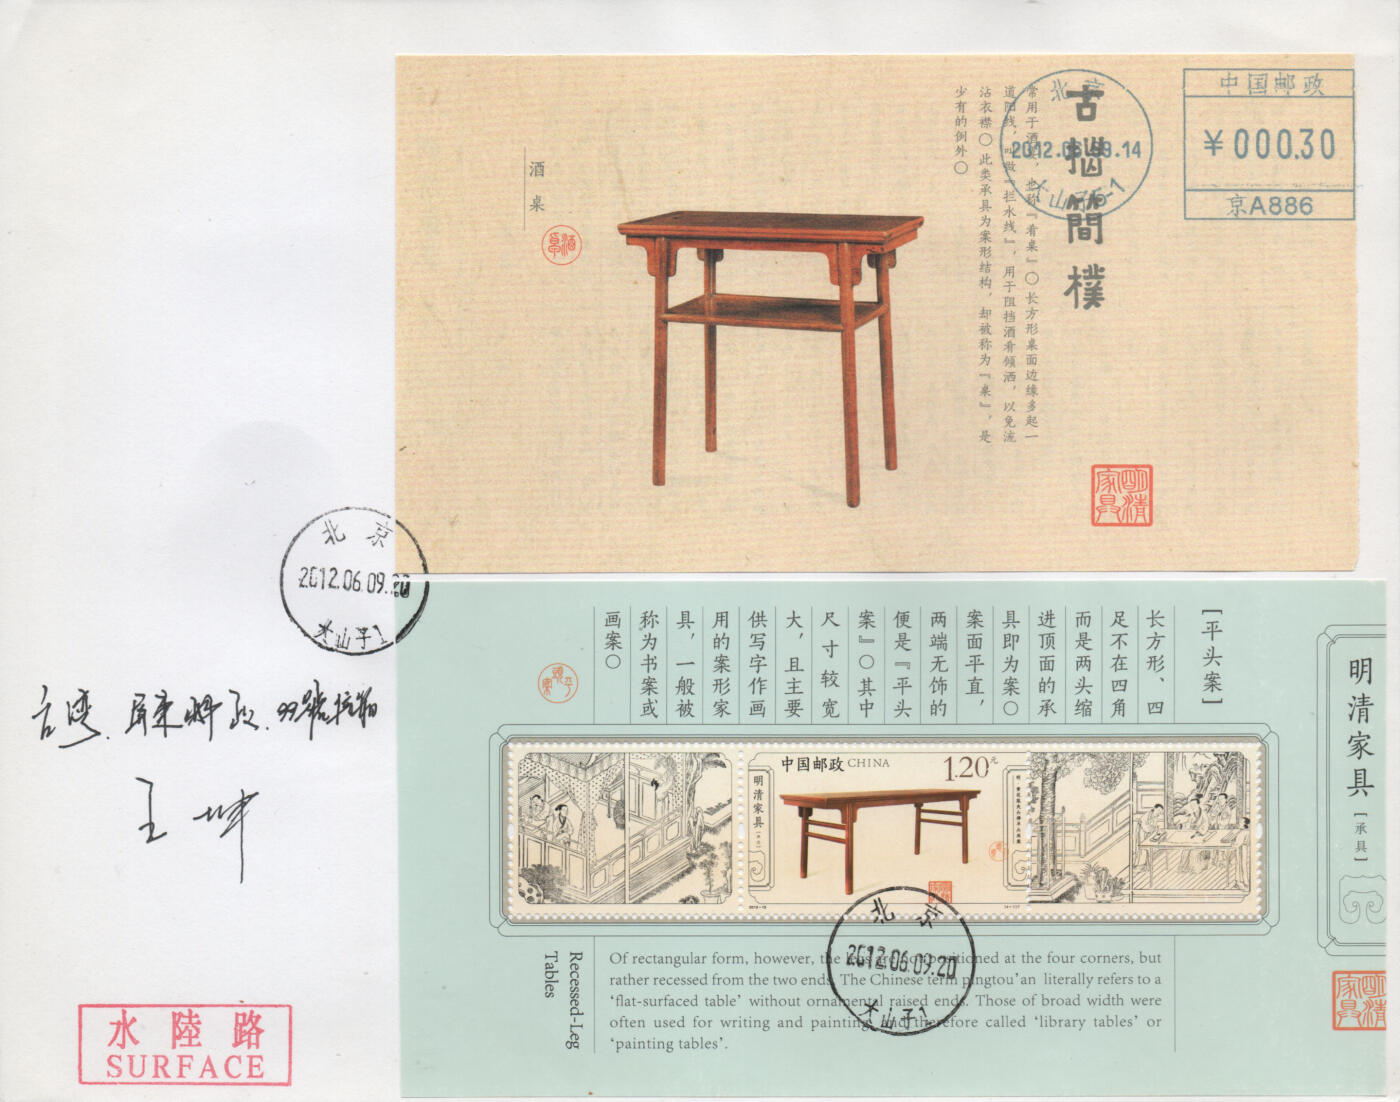 古拙简樸
常用于酒宴，也称『肴桌』〇长方形桌面边缘多起一
道阳线，叫做『拦水线』，用于阻挡酒肴倾洒，以免流
沾衣襟〇此类承具为案形结构，却被称为『桌』，是
少有的例外〇
酒桌
酒桌
明清家具
北京
2012.06.09.14
大山子5-1
中国邮政
¥000.30
京A886
北京
2012.06.09.20
大山子1
台湾.屏東郵政.99號信箱
王坤
水陸路
SURFACE
[平头案]
长方形、四
足不在四角
而是两头缩
进顶面的承
具即为案〇
案面平直，
两端无饰的
便是『平头
案』〇其中
尺寸较宽
大，且主要
供写字作画
用的案形家
具，一般被
称为书案或
画案〇
平头案
明清家具
[承具]
明清家具
中国邮政 CHINA
1.20元
明清家具
2012-12
北京
2012.06.09.20
大山子1
Recessed-Leg
Tables
Of rectangular form, however, the legs are not positioned at the four corners, but
rather recessed from the two ends. The Chinese term pingtou'an literally refers to a
‘flat-surfaced table’ without ornamental raised ends. Those of broad width were
often used for writing and painting and therefore called ‘library tables’ or
‘painting tables’.